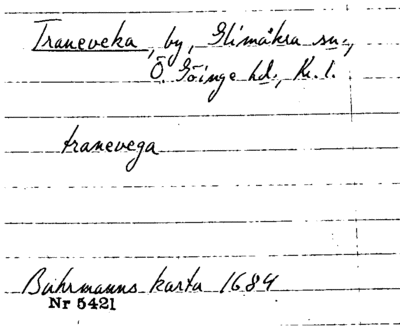 Traneveka, by, Glimåkra sn.,
Ö. Göinge hd., Kr. l.
tranevega
Buhrmanns karta 1684
Nr 5421